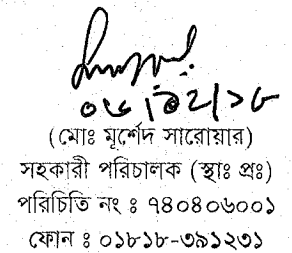 (মোঃ মূর্শেদ সারোয়ার)
সহকারী পরিচালক (স্থাঃ প্রঃ)
পরিচিতি নং : ৭৪০৪০৬০০১
ফোন : ০১৮১৮-৩৯১২৩১